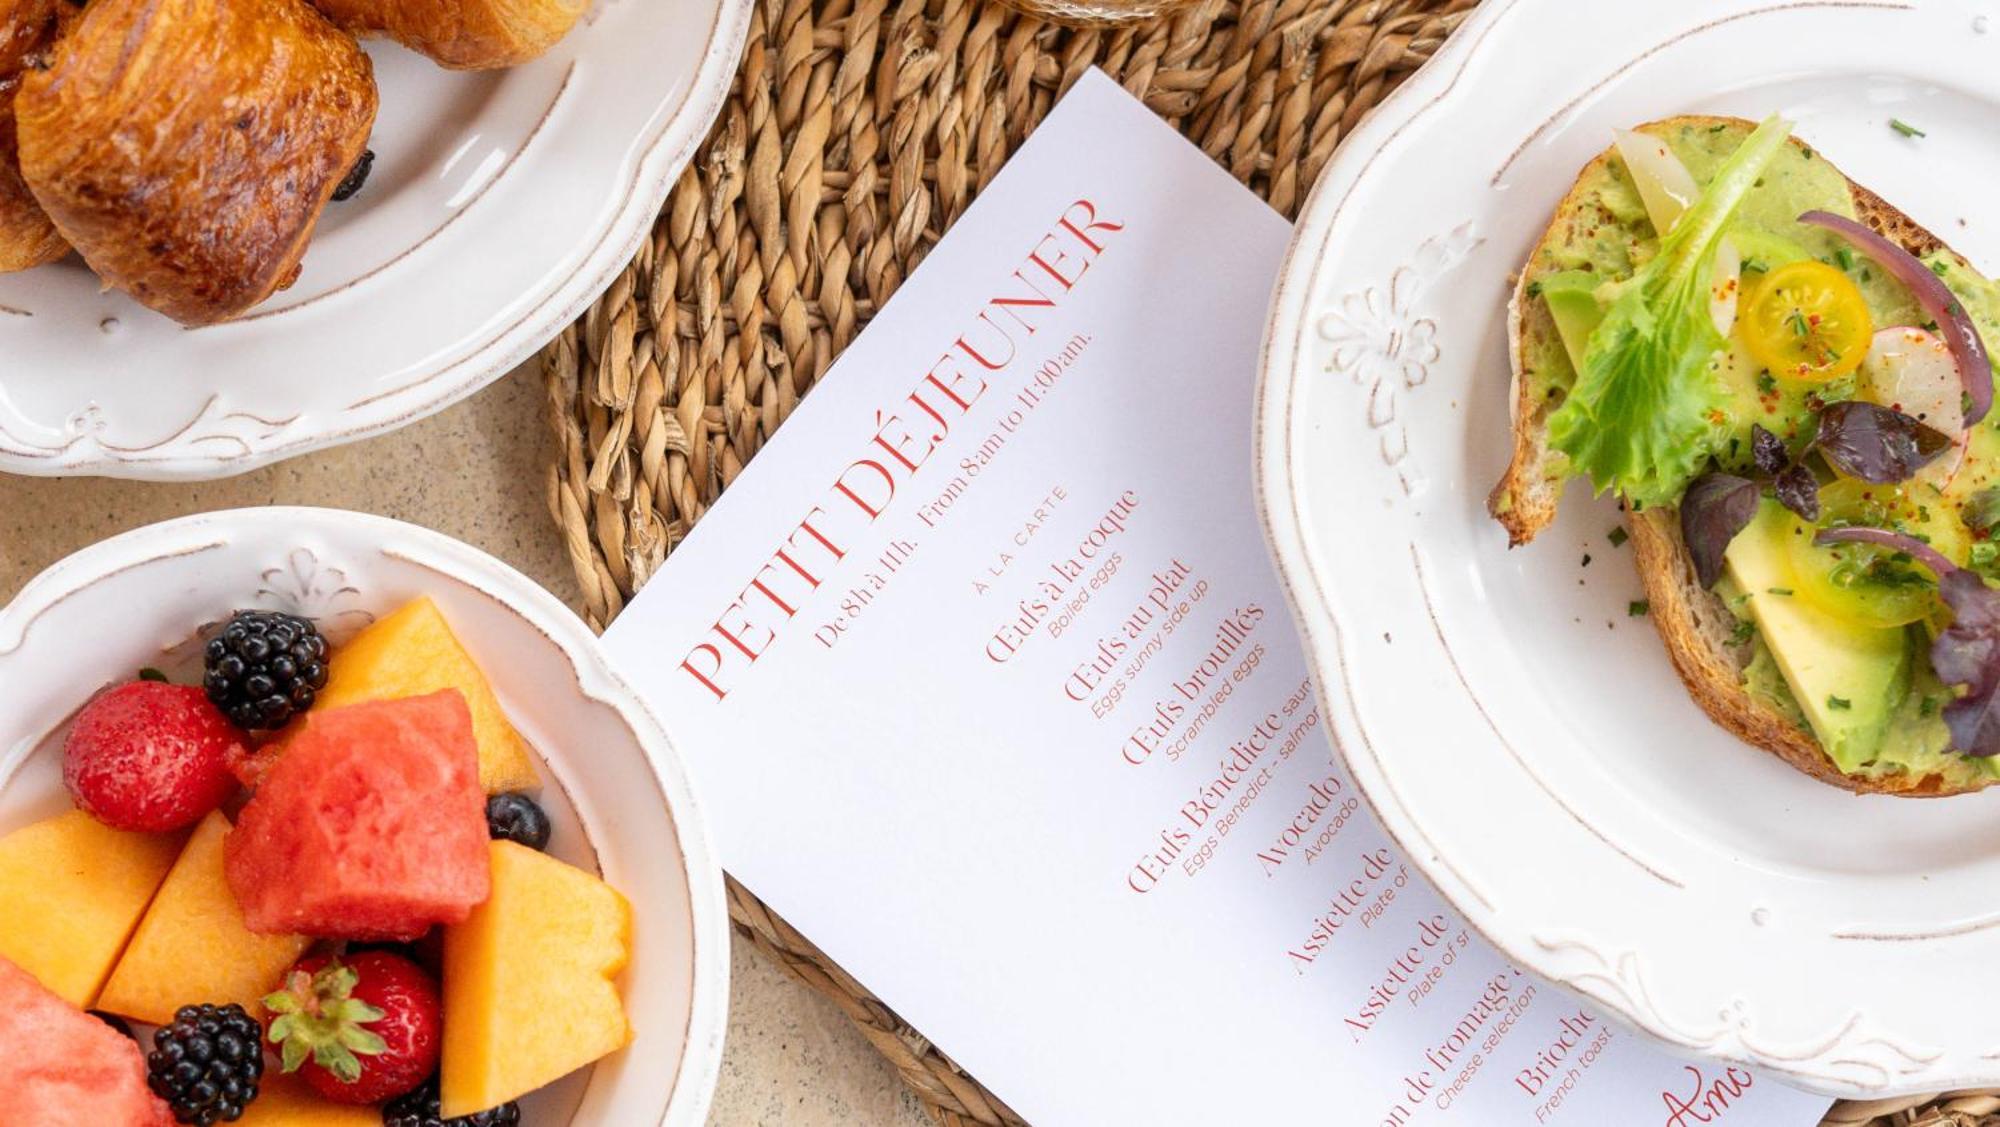 PETIT DÉJEUNER
De 8h à 11h. From 8am to 11:00am.
À LA CARTE
Œufs à la coque
Boiled eggs
Œufs au plat
Eggs sunny side up
Œufs brouillés
Scrambled eggs
Œufs Bénédicte saum
Eggs Benedict - salmon
Avocado
Avocado
Assiette de
Plate of
Assiette de
Plate of
on de fromage
Cheese selection
Brioche
French toast
Amo